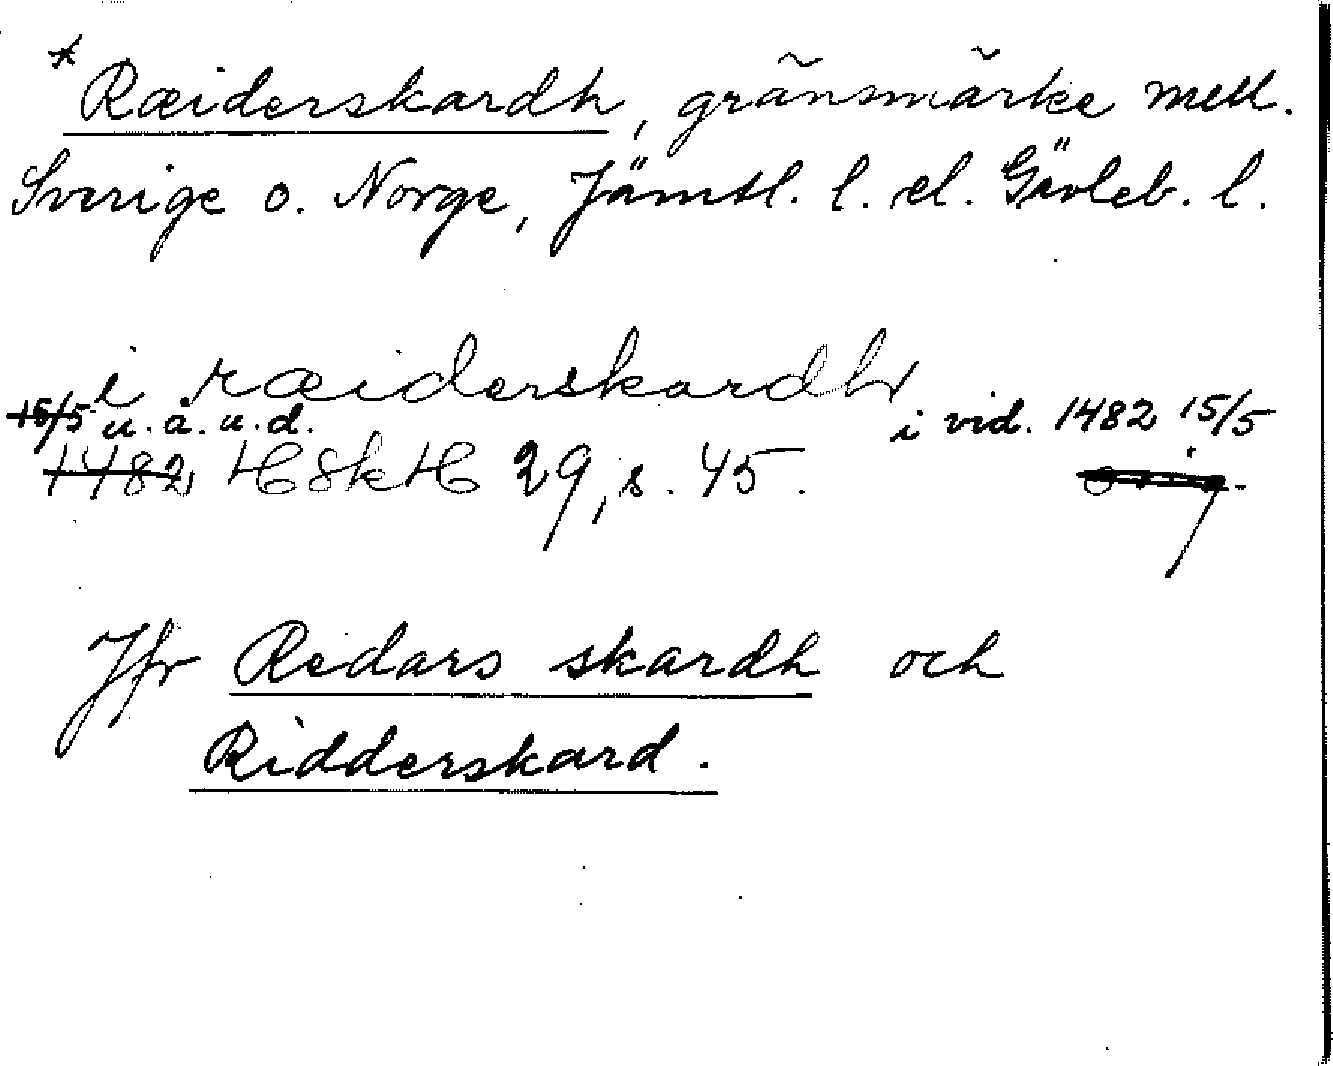 * Ræiderskardh, gränsmärke mell.
Sverige o. Norge, Jämtl. l. el. Gävleb. l.
i ræiderskardh
15/5 u. å. u. d. i vid. 1482 15/5
1482 HSkH 29, s. 45. orig.
Jfr Redars skardh och
Ridderskard.